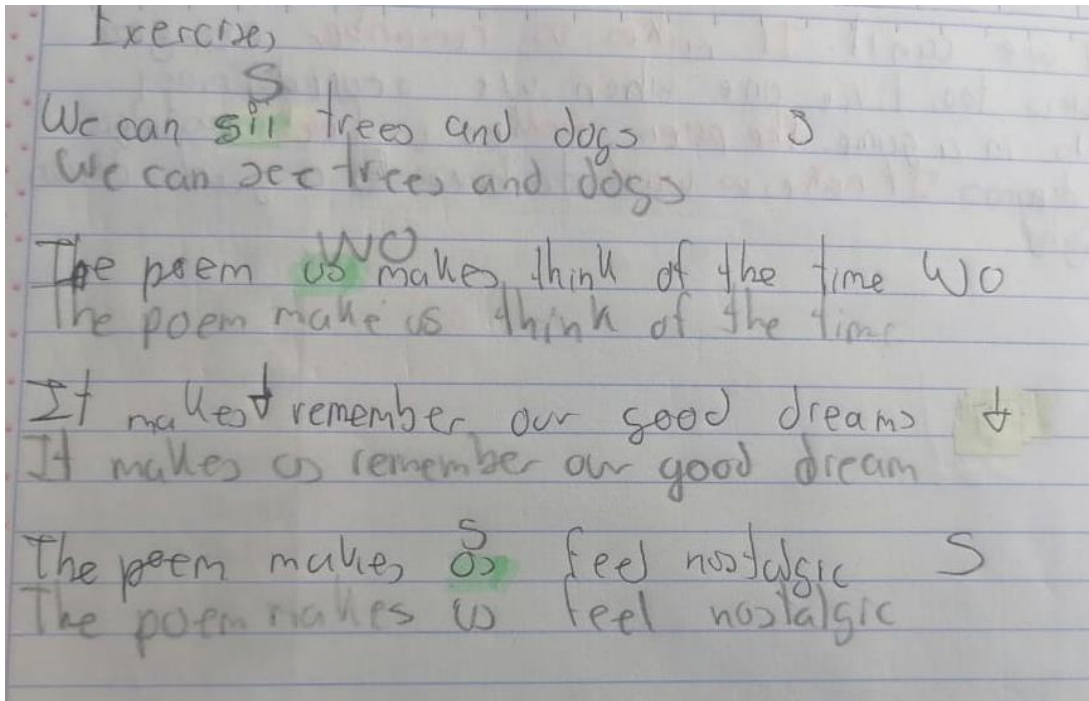 Exercises
S
We can sii trees and dogs S
We can see trees and dogs
WO
The poem us makes think of the time WO
The poem make us think of the time
It makes ↓ remember our good dreams ↓
It makes us remember our good dream
S
The poem makes os feel nostalgic S
The poem makes us feel nostalgic